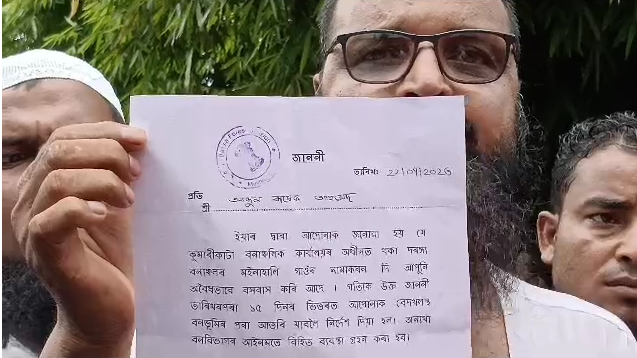 জাননী
তাৰিখঃ 22/07/2026
প্ৰতি
শ্ৰী আব্দুল
ইয়াৰ দ্বাৰা আপোনাক জনোৱা হয় যে
কুমাৰীকাটা বনাঞ্চলিক কাৰ্যালয়ৰ অধীনত থকা দৰঙ্গা
বনাঞ্চলৰ মইনাহালি গাওঁৰ নামাকৰন দি আপুনি
অবৈধভাৱে বসবাস কৰি আছে । গতিকে উক্ত জাননী
তাৰিখৰপৰা ১৫ দিনৰ ভিতৰত আপোনাক বেদখলকৃত
বনভূমিৰ পৰা আতৰি যাবলৈ নিৰ্দেশ দিয়া হল। অন্যথা
বনবিভাগৰ আইনমতে বিহিত ব্যৱস্থা গ্ৰহন কৰা হব।